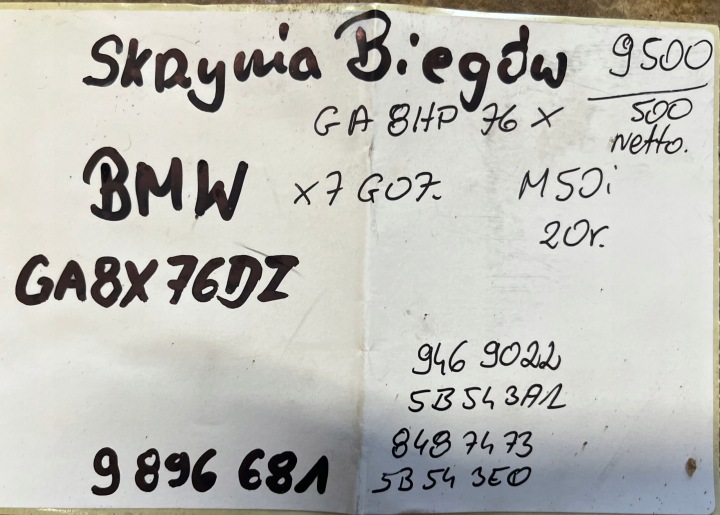 Skrzynia Biegów
9500
500
netto.
GA 8HP 76 X
BMW
x7 G07.
M50i
20r.
GA8X76DZ
946 9022
5B543A1
8487473
5B543E0
9896681